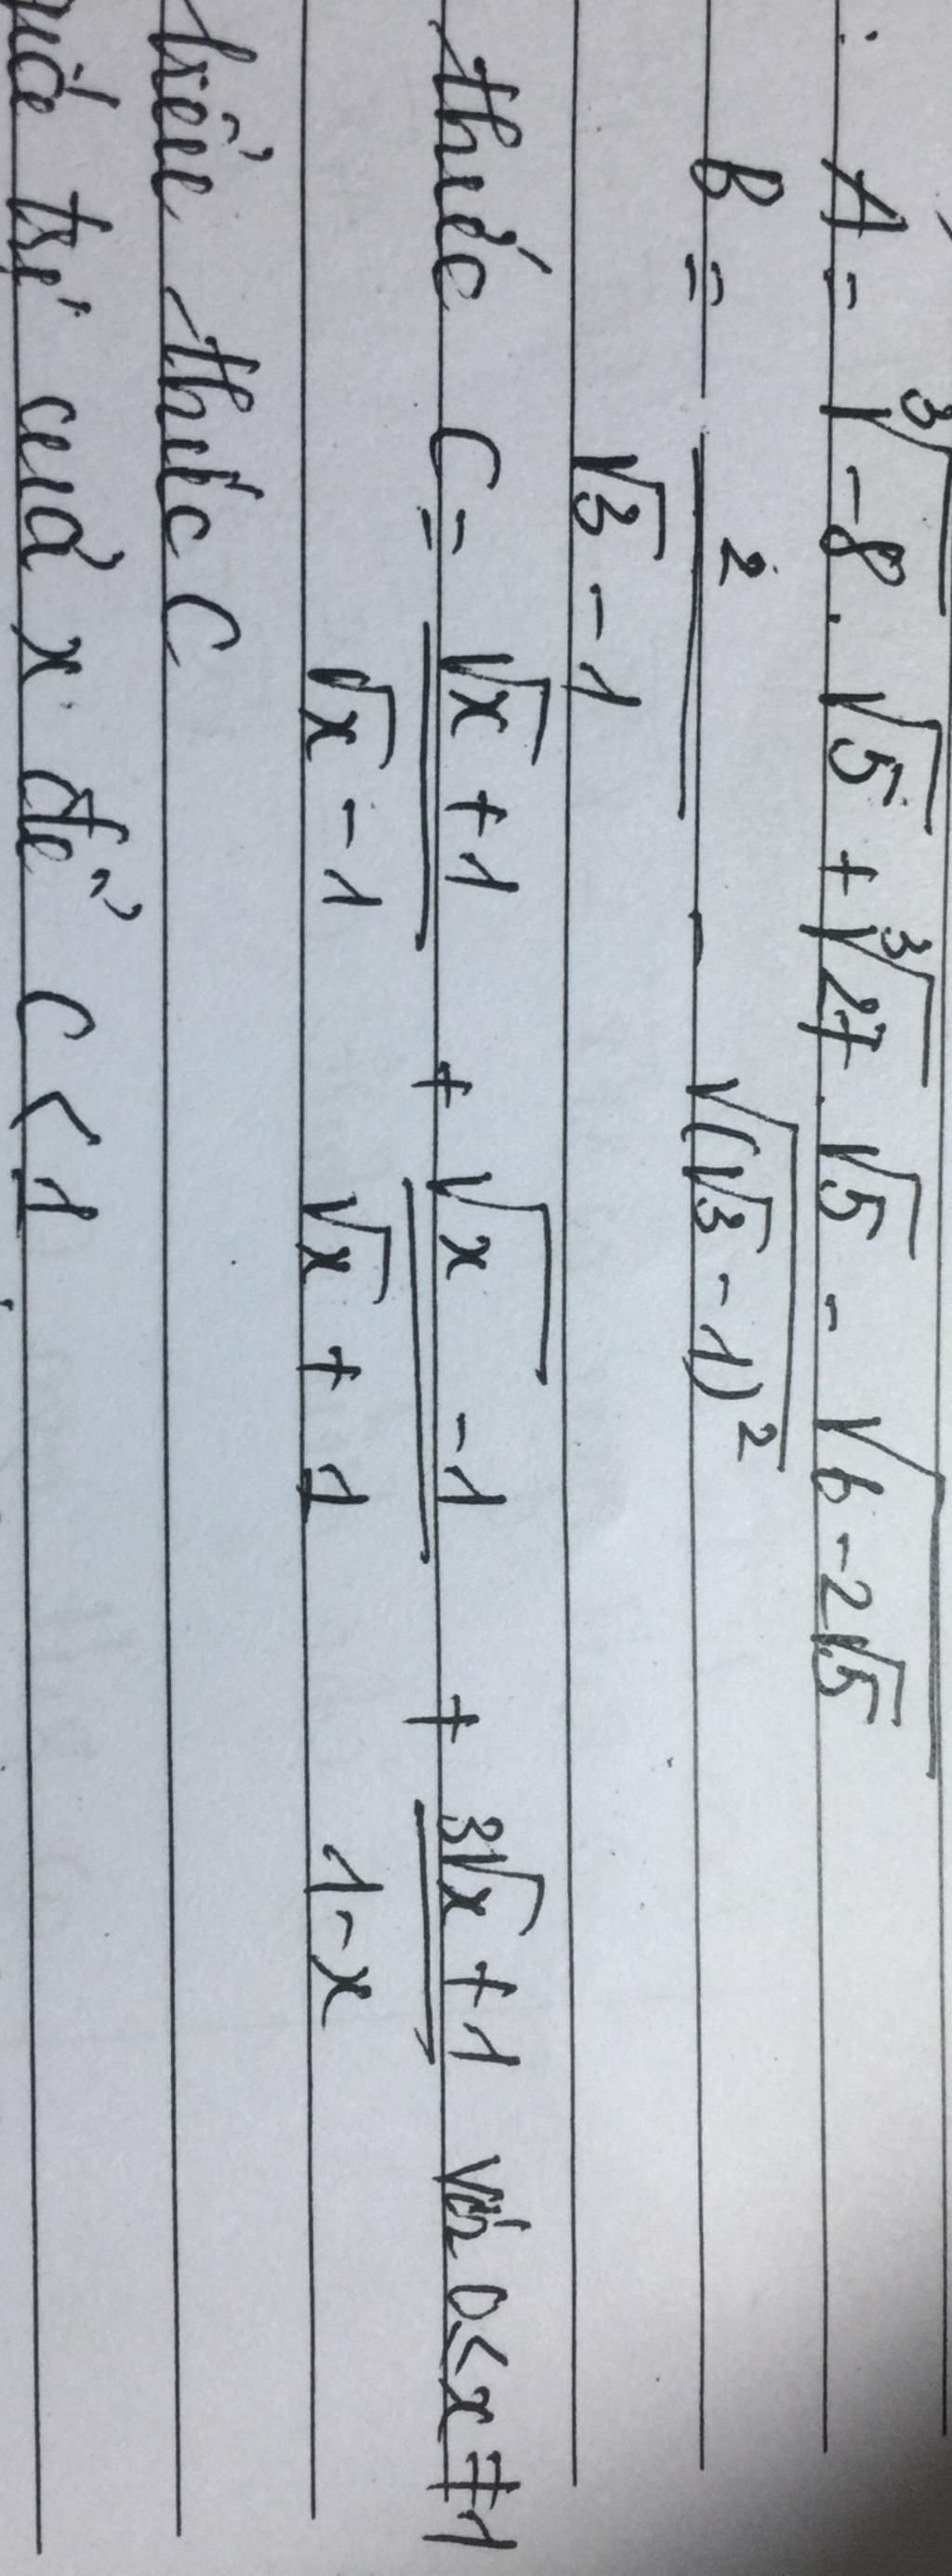 A = ∛-8 . √5 + ∛27 . √5 - √(6 - 2√5)
B = 2/(√3 - 1) - √((√3 - 1)²)
thức C = (√x + 1)/(√x - 1) + (√x - 1)/(√x + 1) + (3√x + 1)/(1 - x) với 0 < x ≠ 1
thức C
trị của x để C < 1